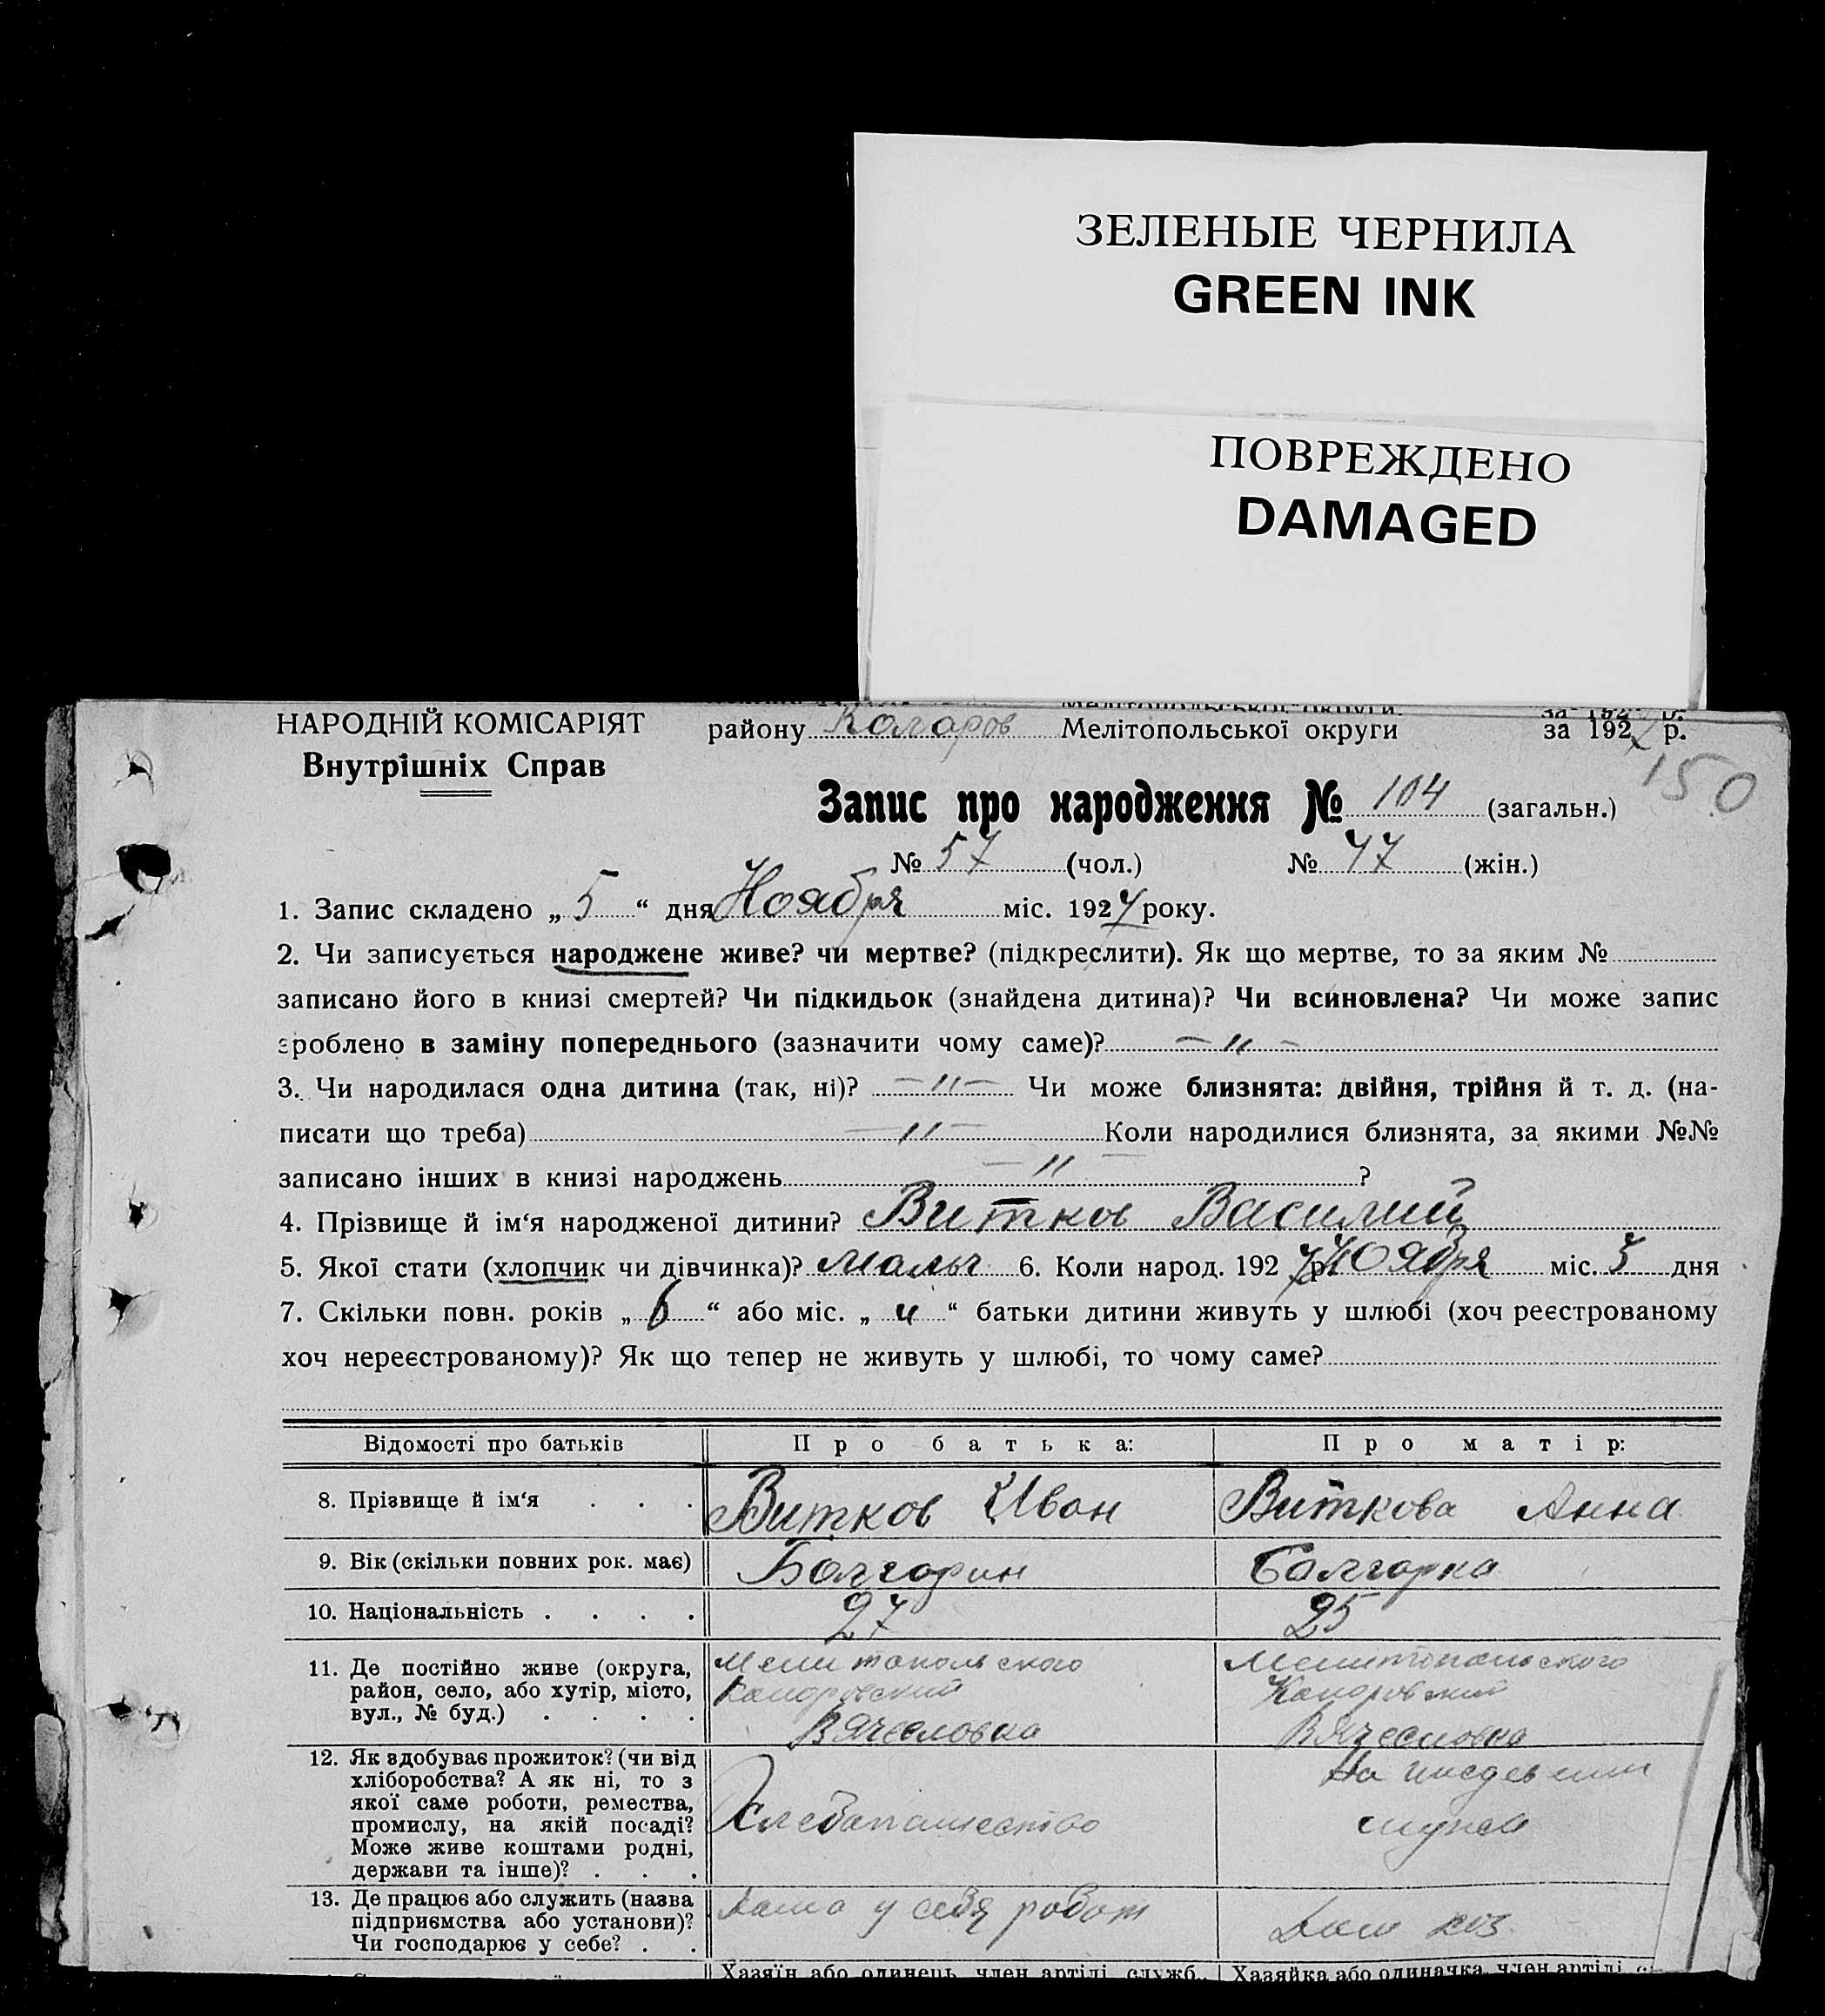 ЗЕЛЕНЫЕ ЧЕРНИЛА
GREEN INK
ПОВРЕЖДЕНО
DAMAGED
НАРОДНІЙ КОМІСАРІЯТ
Внутрішніх Справ
району Коларов Мелітопольської округи за 1927 р.
150
Запис про народження № 104 (загальн.)
№ 57 (чол.) № 47 (жін.)
1. Запис складено „ 5 “ дня Ноября міс. 1927 року.
2. Чи записується народжене живе? чи мертве? (підкреслити). Як що мертве, то за яким №
записано його в книзі смертей? Чи підкидьок (знайдена дитина)? Чи всиновлена? Чи може запис
зроблено в заміну попереднього (зазначити чому саме)? — „ —
3. Чи народилася одна дитина (так, ні)? — „ — Чи може близнята: двійня, трійня й т. д. (на-
писати що треба) — „ — Коли народилися близнята, за якими №№
записано інших в книзі народжень — „ — ?
4. Прізвище й ім‘я народженої дитини? Витков Василий
5. Якої стати (хлопчик чи дівчинка)? Мальч 6. Коли народ. 1927 р. Ноября міс. 3 дня
7. Скільки повн. років „ 6 “ або міс. „ и “ батьки дитини живуть у шлюбі (хоч реєстрованому
хоч нереєстрованому)? Як що тепер не живуть у шлюбі, то чому саме?
Відомості про батьків Про батька: Про матір:
8. Прізвище й ім‘я . . . Витков Иван Виткова Анна
9. Вік (скільки повних рок. має) Болгарин Болгарка
10. Національність . . . . 27 25
11. Де постійно живе (округа, Мелитопольского Мелитопольского
район, село, або хутір, місто, Коларовский Коларовский
вул., № буд.) . . . . Вячесловка Вячесловка
12. Як здобуває прожиток? (чи від
хліборобства? А як ні, то з На иждевении
якої саме роботи, ремества,
промислу, на якій посаді? Хлебапашество мужа
Може живе коштами родні,
держави та інше)? . . .
13. Де працює або служить (назва у себя работ
підприємства або установи)? Дом хоз
Чи господарює у себе? . .
Хазяїн або одинець, член артілі, служб., Хазяйка або одиначка, член артілі,